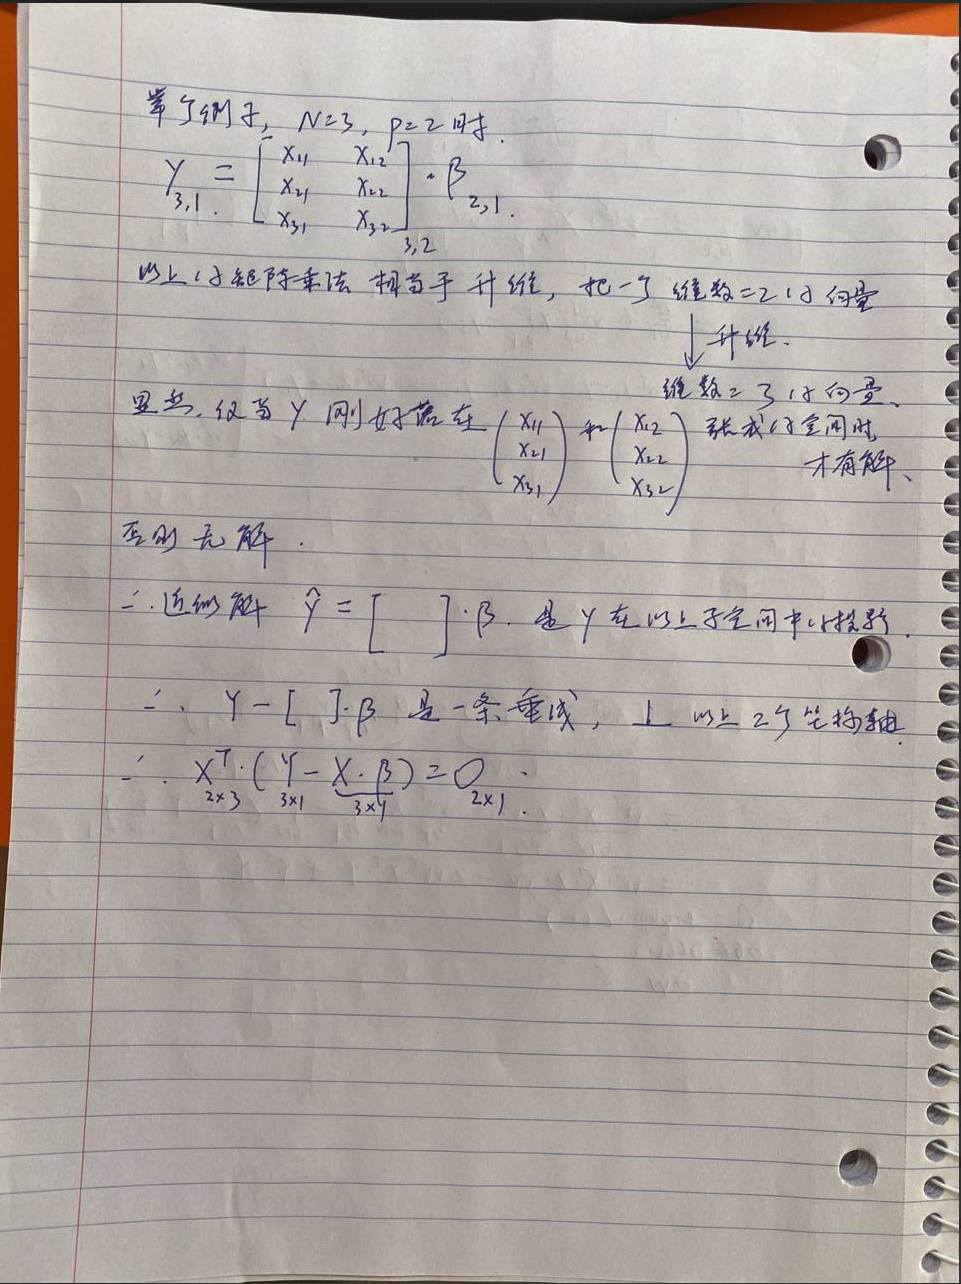 举个例子, N=3, p=2时.
Y = [ x11 x12
x21 x22
x31 x32 ] · β
3,1. 3,2 2,1.
以上的矩阵乘法 相当于 升维, 把一个 维数=2的向量
↓ 升维.
维数=3的向量、
显然, 仅当 Y 刚好落在 ( x11 x21 x31 ) 和 ( x12 x22 x32 ) 张成的空间时
才有解、
否则无解.
∴ 近似解 Ŷ = [ ]·β. 是Y在以上子空间中的投影.
∴ Y-[ ]·β 是一条垂线, ⊥ 以上2个坐标轴.
∴ X^T·(Y-X·β)=0.
2×3 3×1 3×1 2×1.